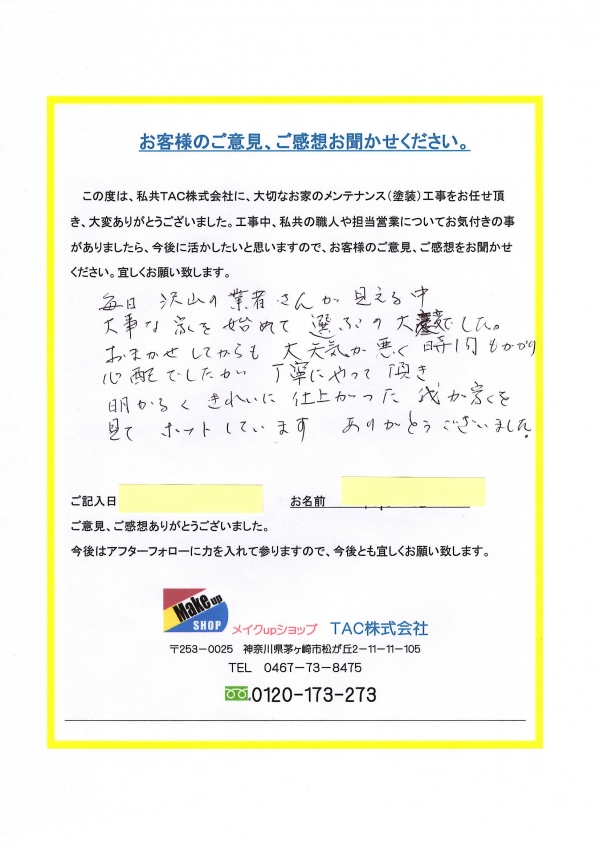 お客様のご意見、ご感想お聞かせください。
この度は、私共TAC株式会社に、大切なお家のメンテナンス(塗装)工事をお任せ頂
き、大変ありがとうございました。工事中、私共の職人や担当営業についてお気付きの事
がありましたら、今後に活かしたいと思いますので、お客様のご意見、ご感想をお聞かせ
ください。宜しくお願い致します。
毎日 沢山の業者さんが見える中
大事な家を始めて選ぶの大変でした。
おまかせしてからも 大天気が悪く 時間もかかり
心配でしたが 丁寧にやって頂き
明かるくきれいに仕上がった 我が家を
見て ホットしています ありがとうございました。
ご記入日 お名前
ご意見、ご感想ありがとうございました。
今後はアフターフォローに力を入れて参りますので、今後とも宜しくお願い致します。
Make up
SHOP
メイクupショップ TAC株式会社
〒253-0025 神奈川県茅ヶ崎市松が丘2-11-11-105
TEL 0467-73-8475
0120-173-273